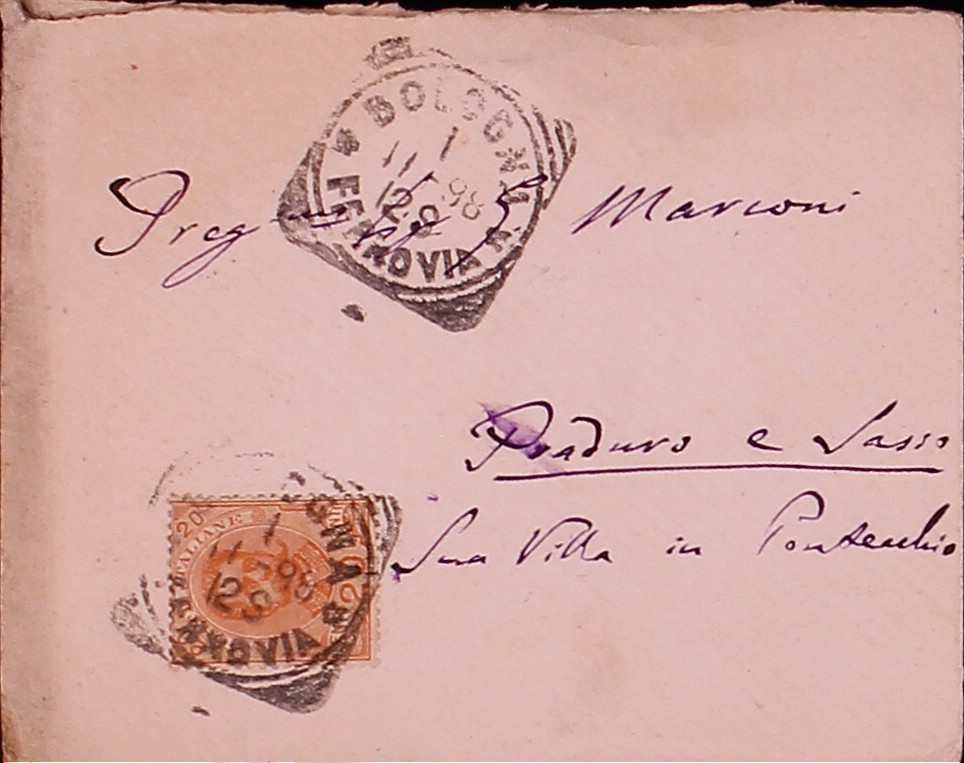 BOLOGNA
11 1 98
12 S
FERROVIA
Preg G. Marconi
Praduro e Sasso
Sua Villa in Pontecchio
20 ITALIANE 20
11 1 98
12 S
FERROVIA